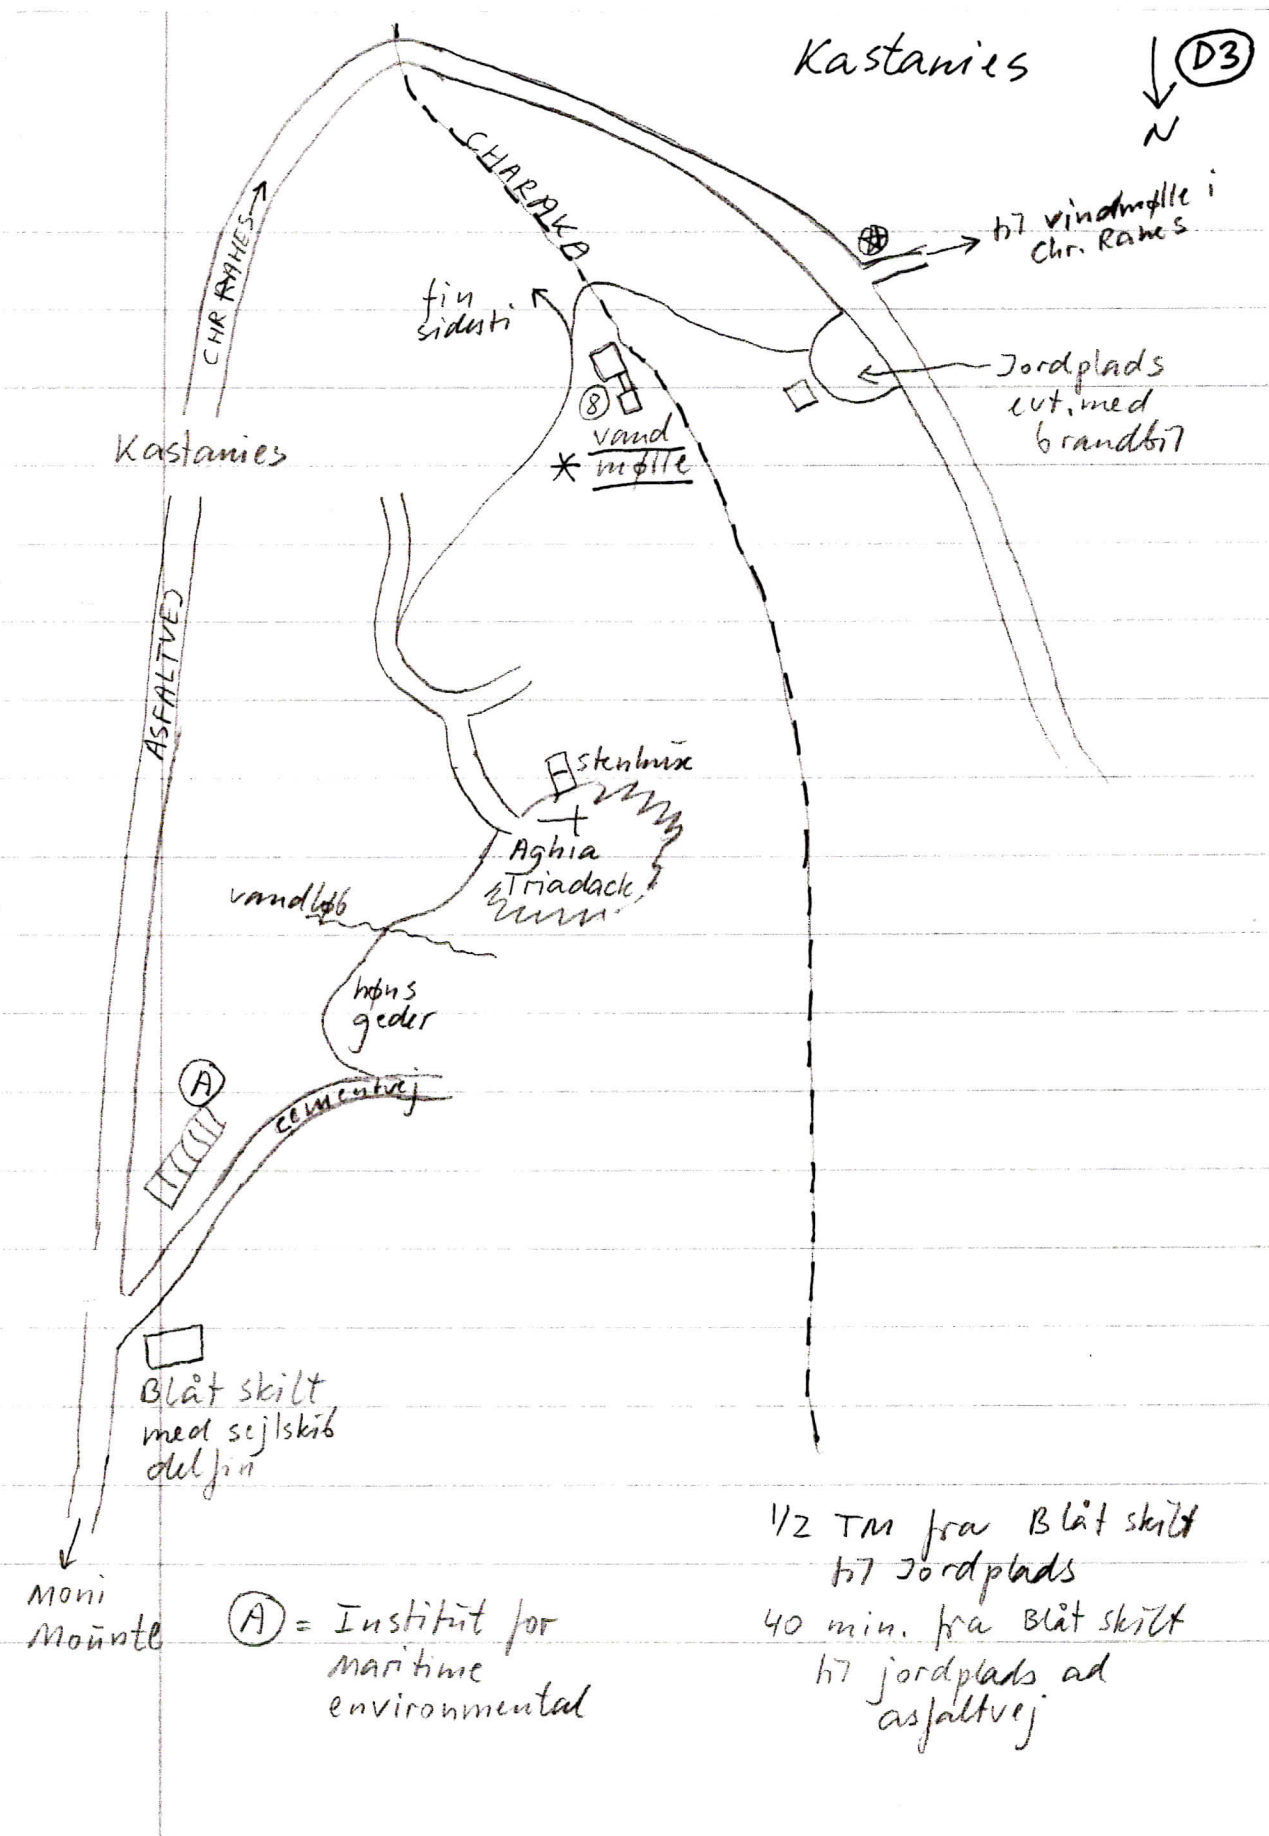 Kastanies
D3
N
CHARAKA
CHR RAHES
til vindmølle i
Chr. Rahes
fin
sidesti
Jordplads
evt. med
brandbil
8
vand
mølle
Kastanies
ASFALTVEJ
stenhuse
Aghia
Triadack
vandløb
høns
geder
A
cementvej
Blåt skilt
med sejlskib
delfin
Moni
Moũnte
A = Institũt for
Maritime
environmental
1/2 TM fra Blåt skilt
til Jordplads
40 min. fra Blåt skilt
til jordplads ad
asfaltvej